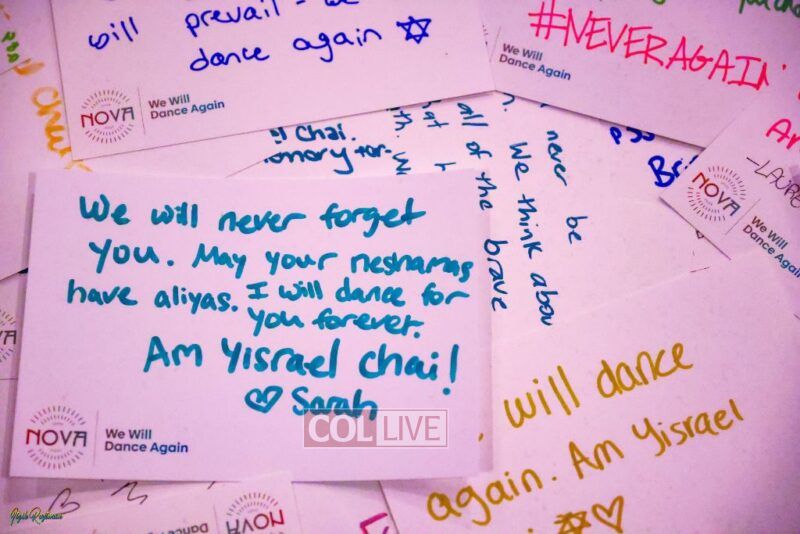 will prevail - we
dance again ✡
NOVA
We Will
Dance Again
#NEVERAGAIN
We Will
Dance Again
chai.
never be
We think abou
all of the brave
NOVA
We Will
Dance Again
We will never forget
you. May your neshamas
have aliyas. I will dance for
you forever.
Am Yisrael chai!
♡ Sarah
NOVA
We Will
Dance Again
COL LIVE
will dance
again. Am Yisrael
✡♡
We Will
Dance Again
NOVA